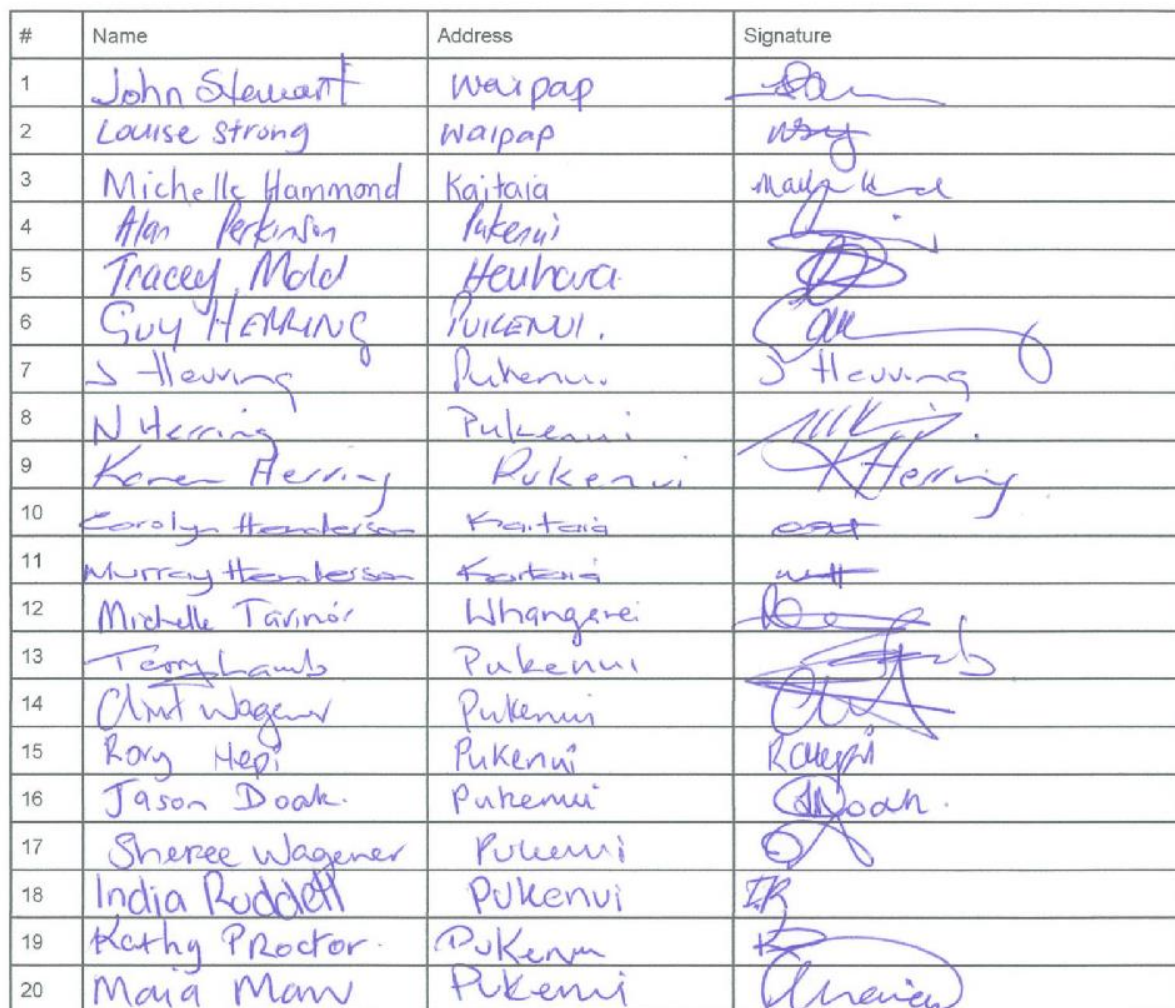 # Name Address Signature
1 John Stewart Waipap
2 Louise Strong Waipap
3 Michelle Hammond Kaitaia
4 Alan Perkinson Pukenui
5 Tracey Mold Houhora
6 GUY HERRING PUKENUI.
7 J Herring Pukenui. J Herring
8 N Herring Pukenui
9 Karen Herring Pukenui K Herring
10 Carolyn Henderson Kaitaia
11 Murray Henderson Kaitaia
12 Michelle Whangarei
13 Terry Lamb Pukenui
14 Clint Wagener Pukenui
15 Rory Hepi Pukenui
16 Jason Doak. Pukenui Doak.
17 Sheree Wagener Pukenui
18 India Ruddell Pukenui IR
19 Kathy PRoctor. Pukenui
20 Maia Pukenui